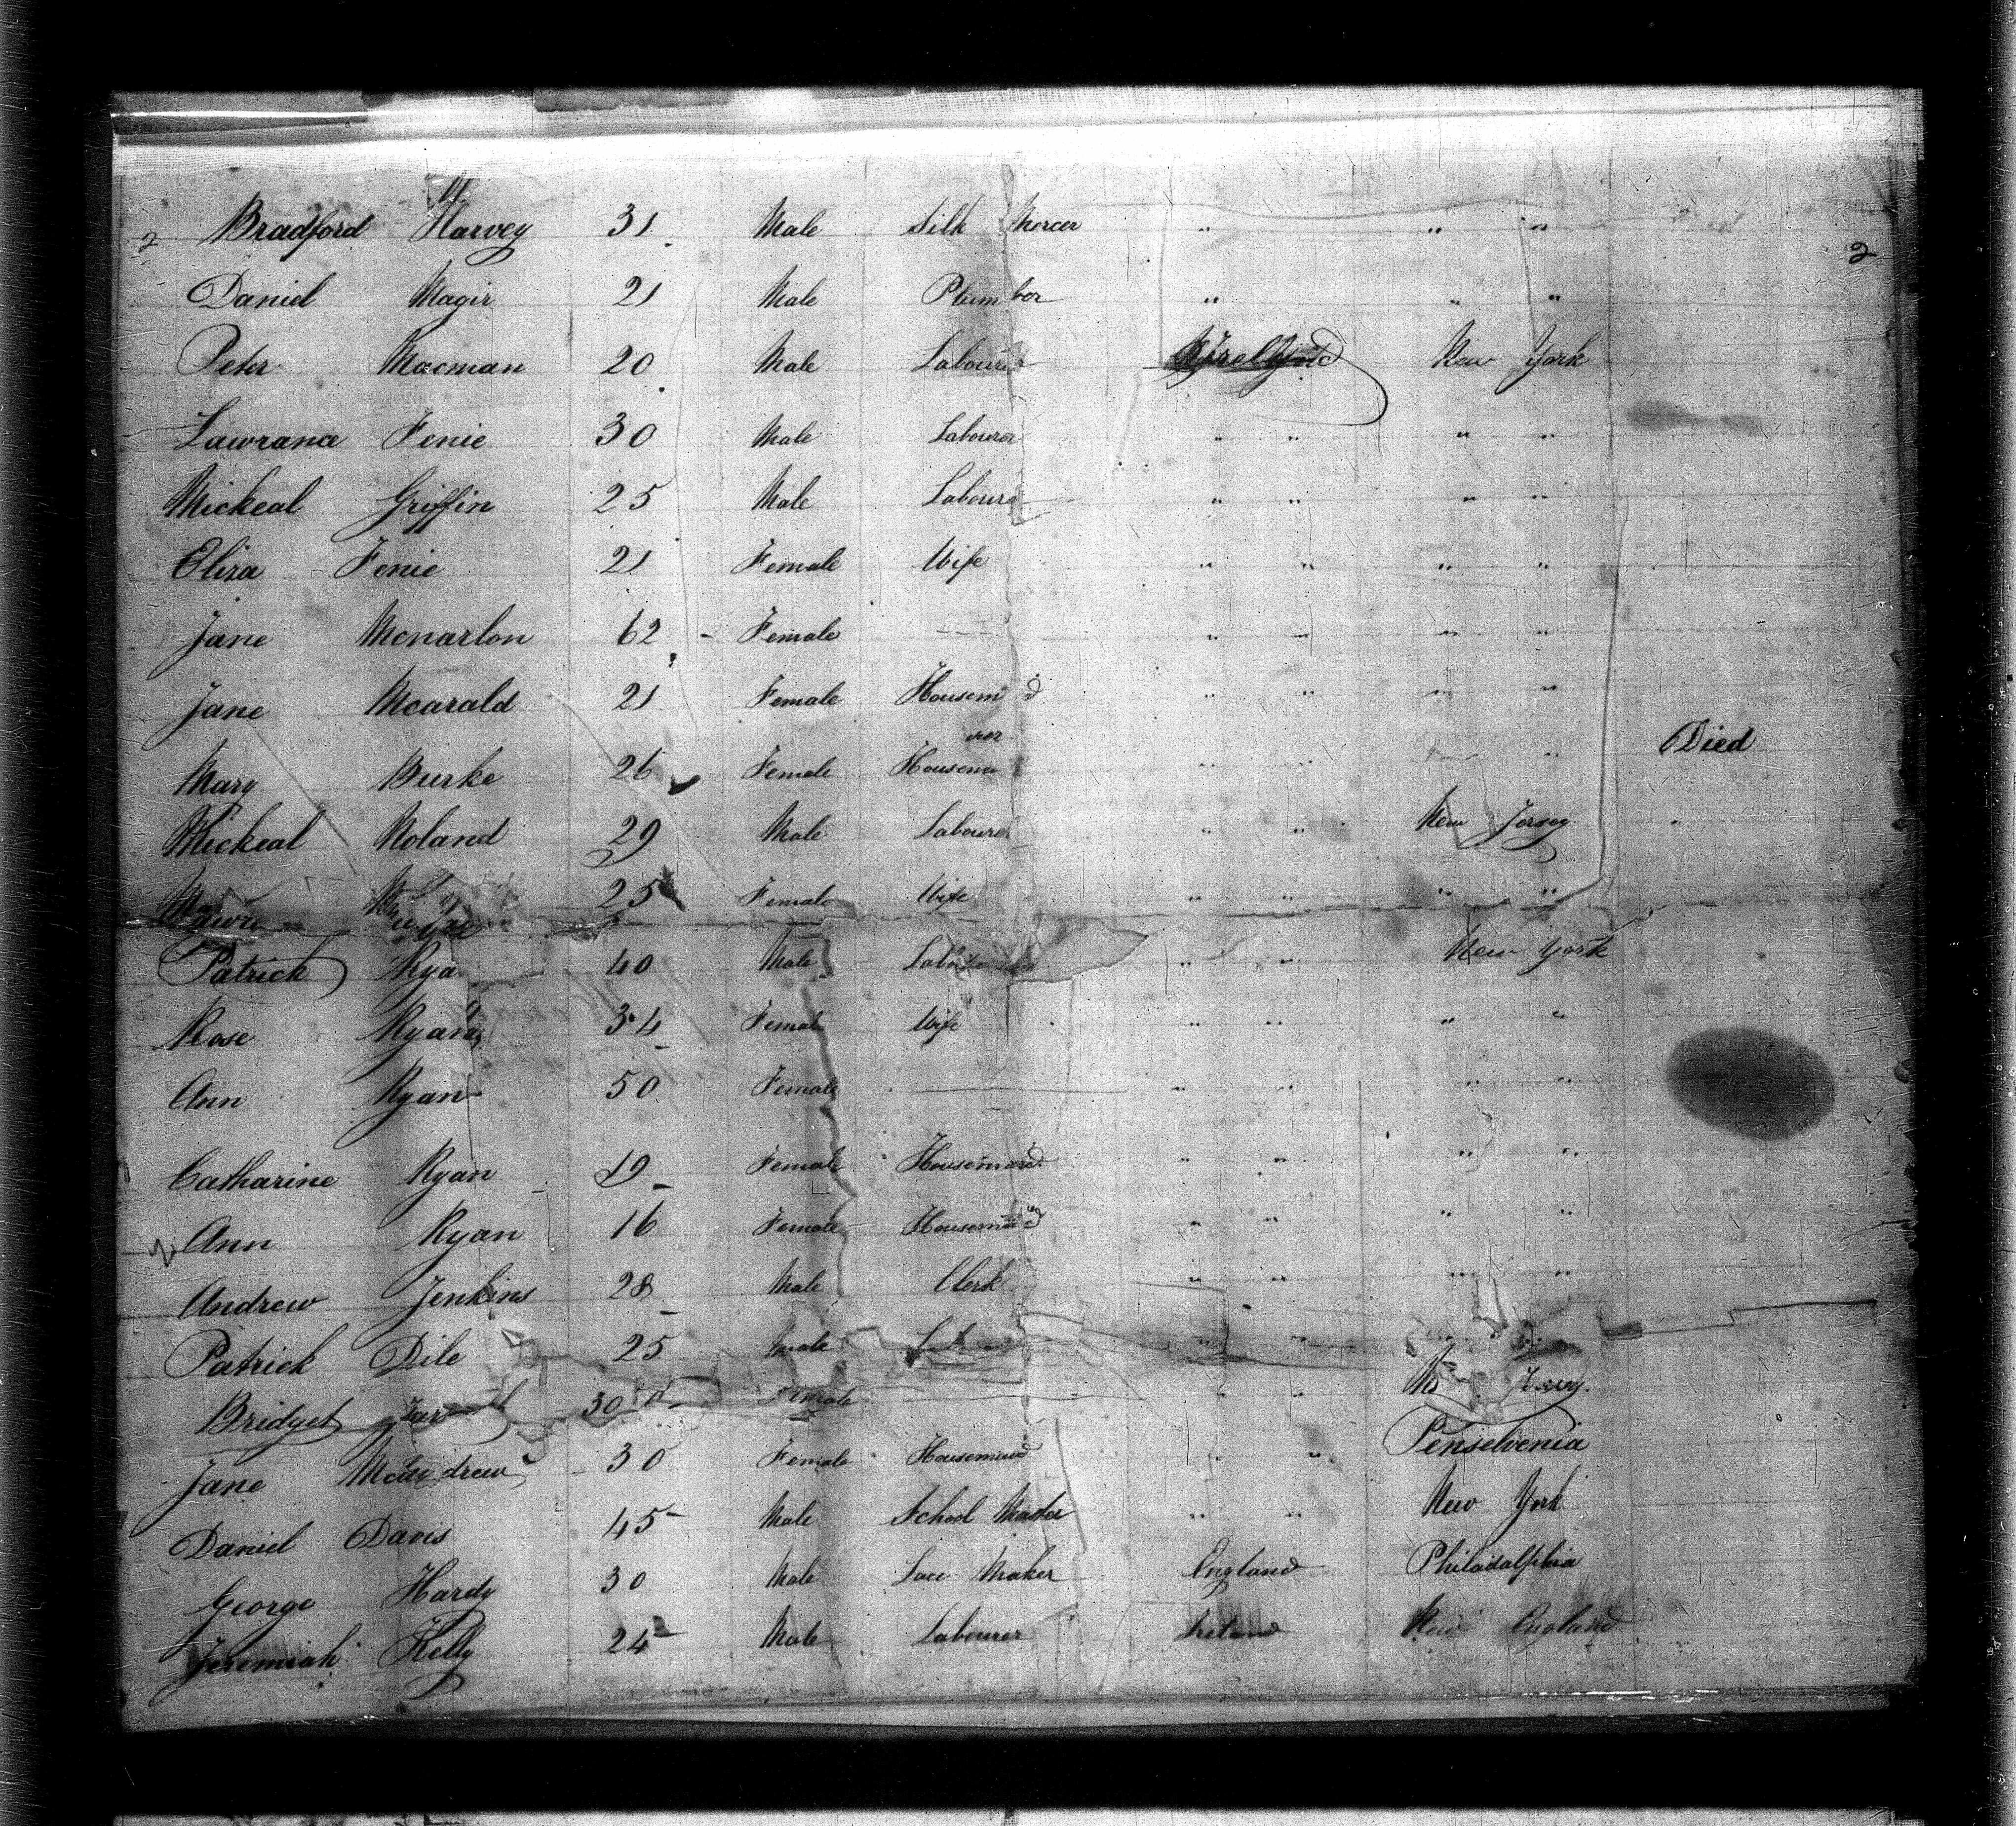 2 Bradford Harvey 31 Male Silk Mercer " " " 2
Daniel Magir 21 Male Plumber " " "
Peter Macman 20 Male Labourer New York
Lawrance Fenie 30 Male Labourer " " " "
Mickeal Griffin 25 Male Labourer " " " "
Eliza Fenie 21 Female Wife " " " "
Jane Mcnarlon 62 - Female " " " "
Jane Mcarald 21 Female Housem d " " " "
Mary Burke 26 Female Housema " " " " Died
Mickeal Noland 29 Male Labourer " " New Jersey
25 Female Wife " " " "
Patrick Rya 40 Male " " New York
Rose Ryan 34 Female Wife " " " "
Ann Ryan 50 Female " " " "
Catharine Ryan 19 Female Housemaid " " " "
Ann Ryan 16 Female Housemaid " " " "
Andrew Jenkins 28 Male Clerk " " " "
Patrick Dile 25 Male " "
Bridget 30 Female " "
Jane Mcandrew 30 Female Housemaid " " Penselvenia
Daniel Davis 45 Male School Master " " New York
George Hardy 30 Male Lace Maker England Philadalphia
Jeremiah Kelly 24 Male Labourer Ireland New England